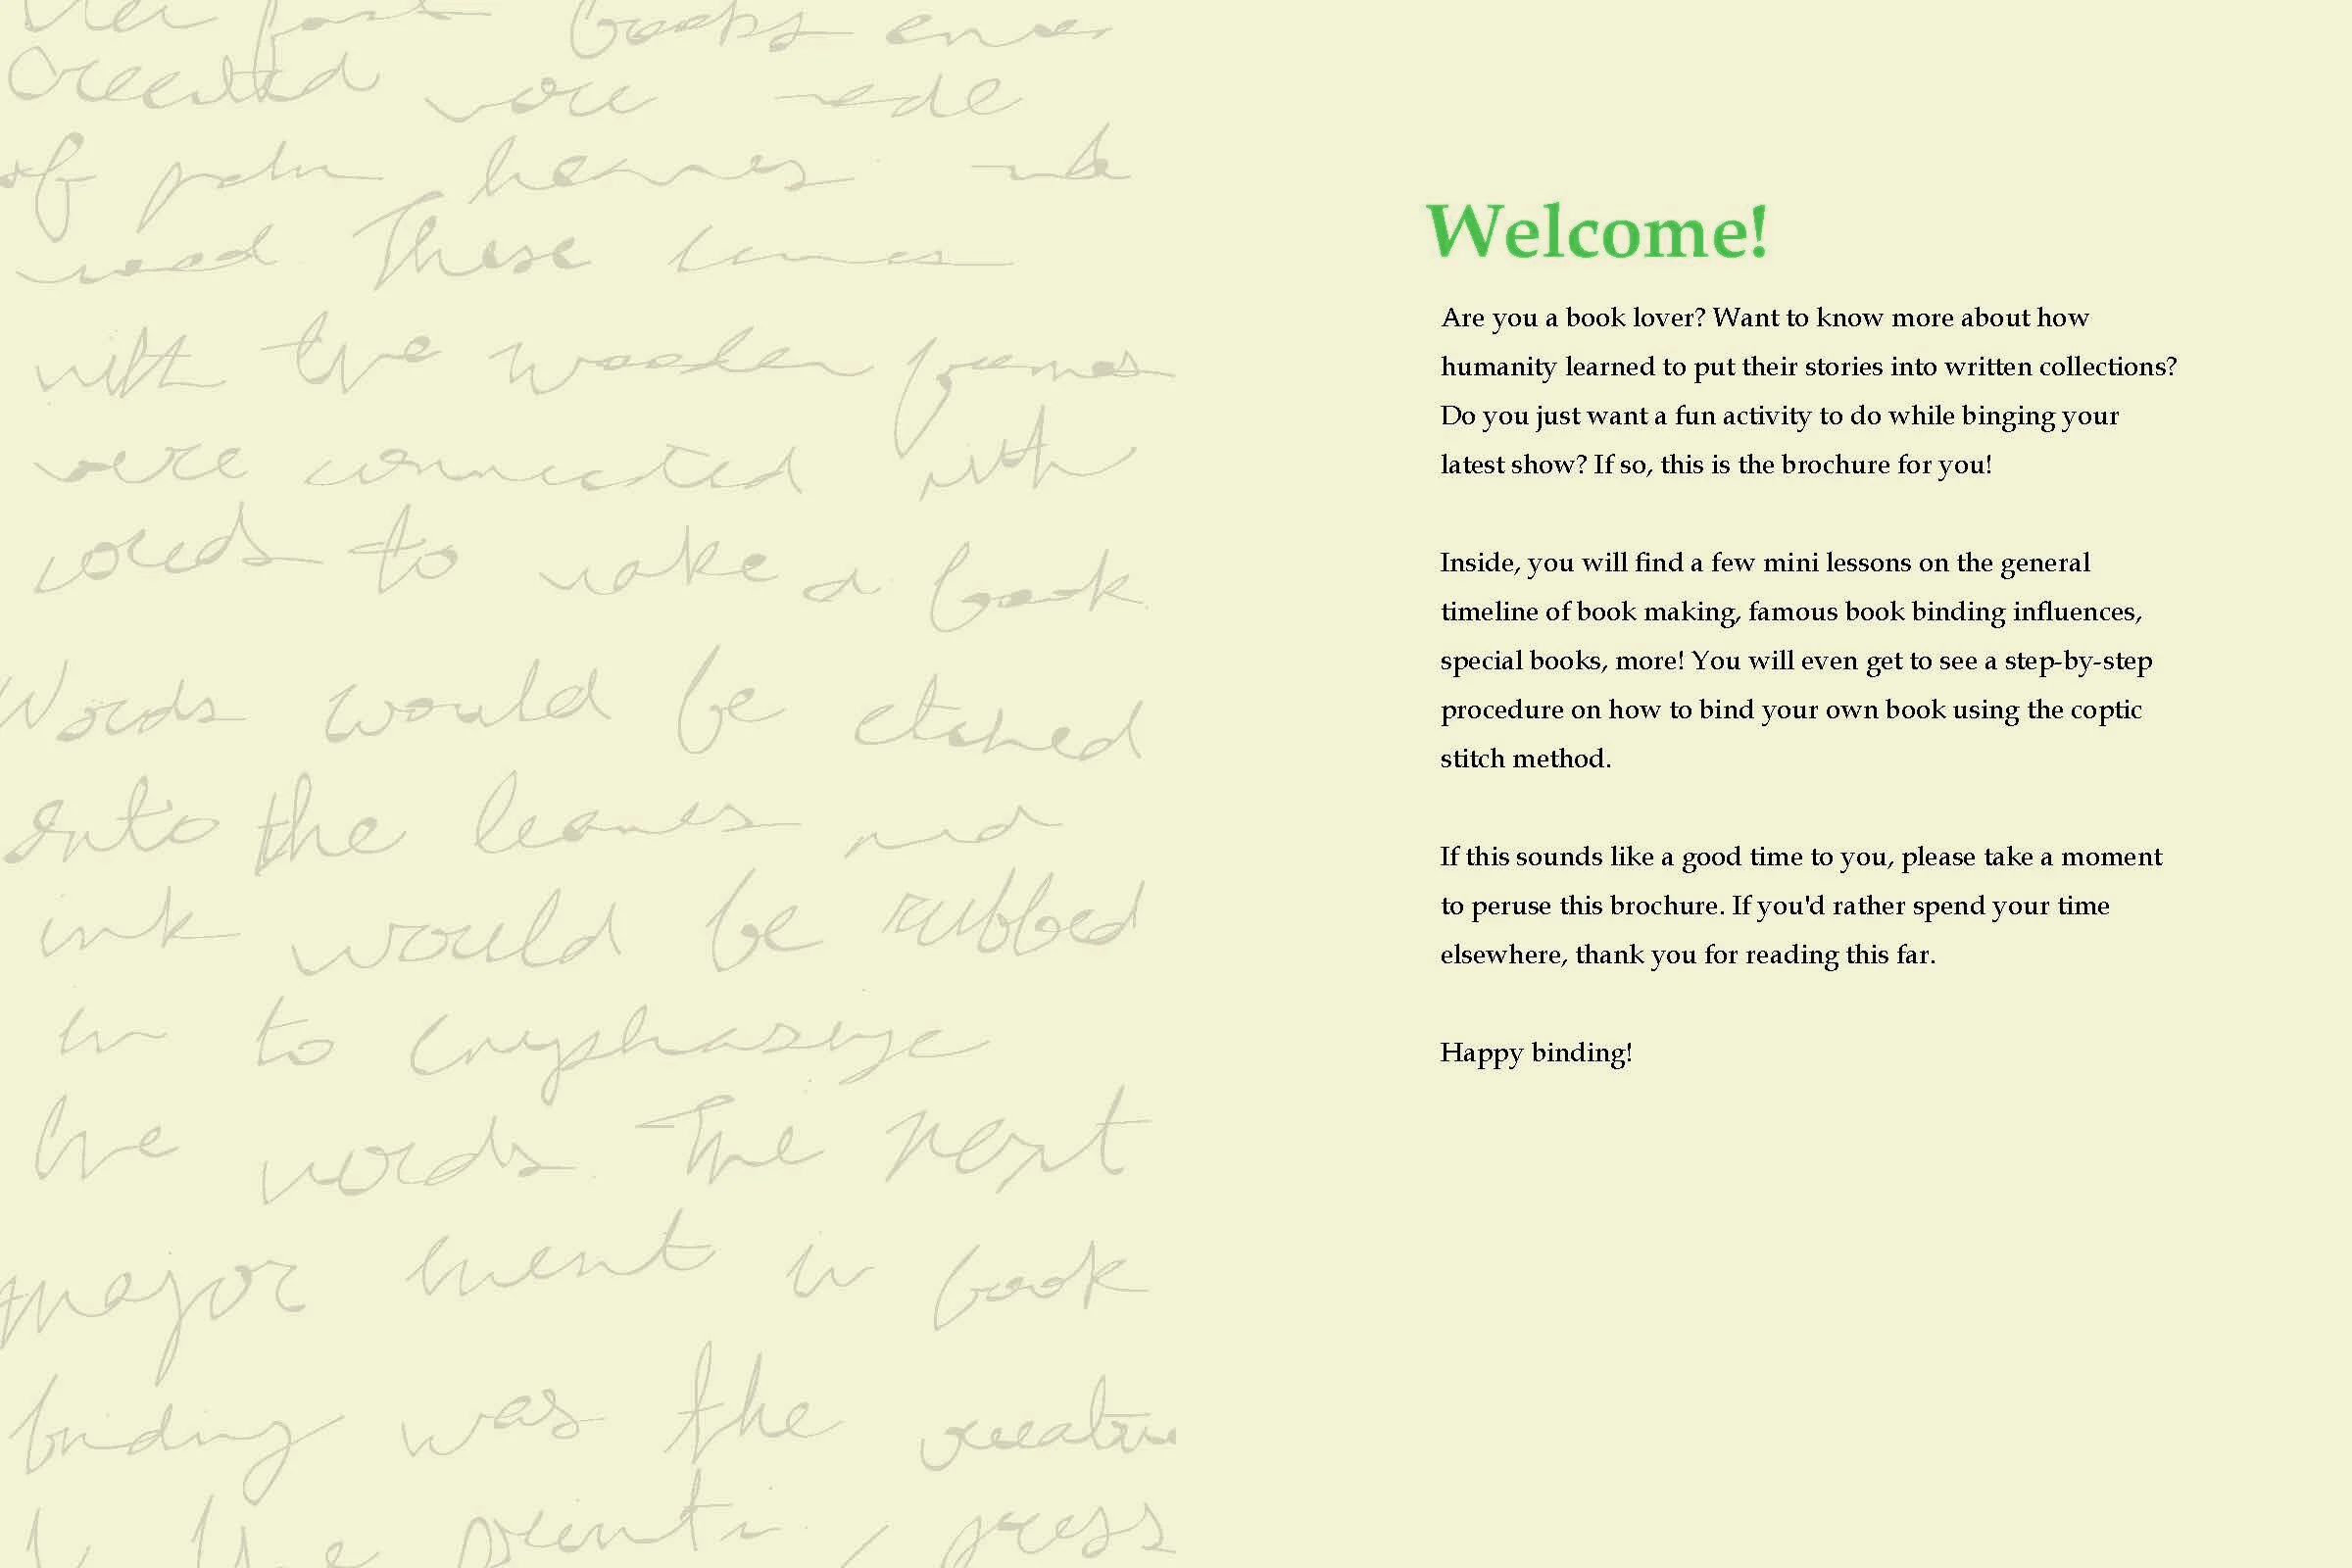 books ever
created were made
of palm leaves
used. These leaves
with the wooden frames
were connected with
to make a book
Words would be etched
onto the leaves and
ink would be rubbed
in to emphasize
the words. The next
major event in book
binding was the
press
Welcome!
Are you a book lover? Want to know more about how
humanity learned to put their stories into written collections?
Do you just want a fun activity to do while binging your
latest show? If so, this is the brochure for you!
Inside, you will find a few mini lessons on the general
timeline of book making, famous book binding influences,
special books, more! You will even get to see a step-by-step
procedure on how to bind your own book using the coptic
stitch method.
If this sounds like a good time to you, please take a moment
to peruse this brochure. If you'd rather spend your time
elsewhere, thank you for reading this far.
Happy binding!